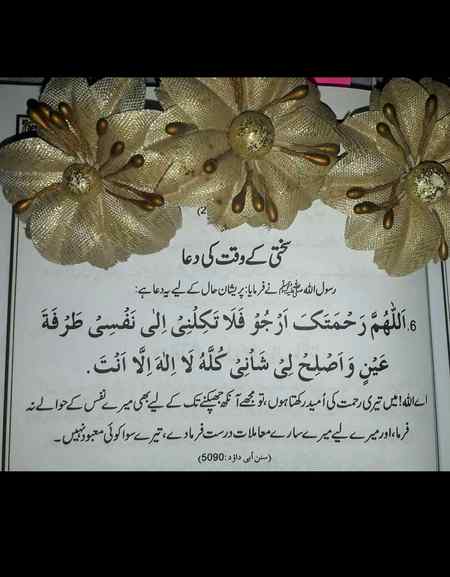 (2
سختی کے وقت کی دعا
رسول اللہ ﷺ نے فرمایا: پریشان حال کے لیے یہ دعا ہے:
6. اَللّٰهُمَّ رَحْمَتَكَ اَرْجُوْ فَلَا تَكِلْنِىْ اِلٰى نَفْسِىْ طَرْفَةَ
عَيْنٍ وَاَصْلِحْ لِىْ شَاْنِىْ كُلَّهُ لَا اِلٰهَ اِلَّا اَنْتَ.
اے اللہ! میں تیری رحمت کی اُمید رکھتا ہوں، تو مجھے آنکھ جھپکنے تک کے لیے بھی میرے نفس کے حوالے نہ
فرما، اور میرے لیے میرے سارے معاملات درست فرما دے، تیرے سوا کوئی معبود نہیں۔
(سنن أبی داؤد: 5090)